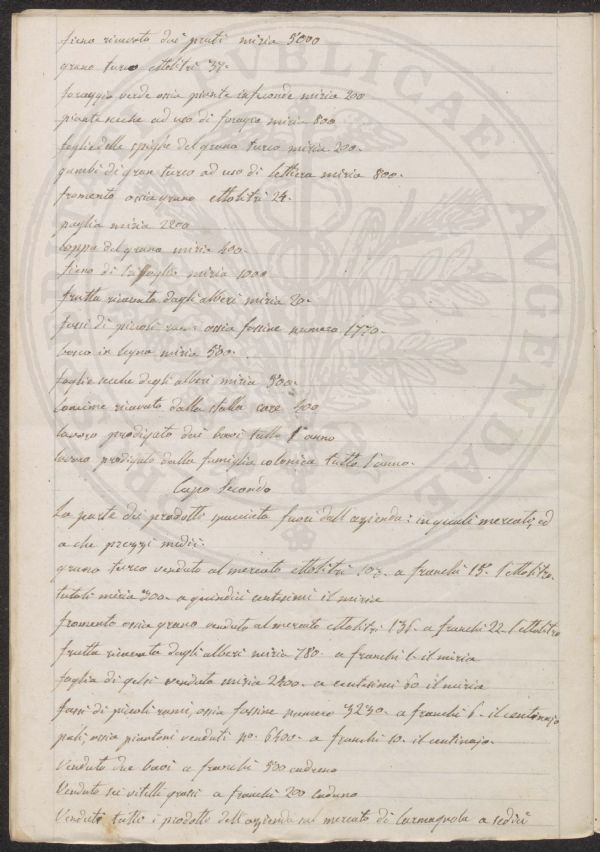 fieno ricavato dai prati miria 5000
grano turco ettolitri 37.
foraggio verde ossia piante infeconde miria 200
piante secche ad uso di foragio miria 800
foglie delle spighe del grano turco miria 200.
gambi di gran turco ad uso di lettiera miria 800.
fromento ossia grano ettolitri 24.
paglia miria 2200
loppa del grano miria 400.
fieno di trifoglio miria 1000
frutta ricavata dagli alberi miria 20.
fassi di piccoli rami ossia fassine numero 1770.
bosco in legna miria 500.
foglie secche degli alberi miria 500.
Concime ricavato dalla stalla care 400
lavoro prodigato dai bovi tutto l'anno
lavoro prodigato dalla famiglia colonica tutto l'anno.
Capo Secondo
La parte dei prodotti spacciata fuori dell'azienda: in quali mercati, ed
a che prezzi medii.
grano turco venduto al mercato ettolitri a franchi 15. l'ettolitro
tutoli miria 300. a quindici centesimi il miria
fromento ossia grano venduto al mercato ettolitri 136. a franchi 22. l'ettolitro
frutta ricavata dagli alberi miria 780. a franchi 1. il miria
foglia di gelsi venduta miria 2400. a centesimi 60 il miria
fassi di picoli rami, ossia fassine numero 3230. a franchi 6. il centinajo
pali, ossia piantoni venduti no. 6400. a franchi 10. il centinajo.
Venduto due bovi a franchi 500 cadreno
Venduto sei vitelli grassi a franchi 200 caduno
Venduto tutto i prodotti dell'azienda sul mercato di Carmagnola a sedici